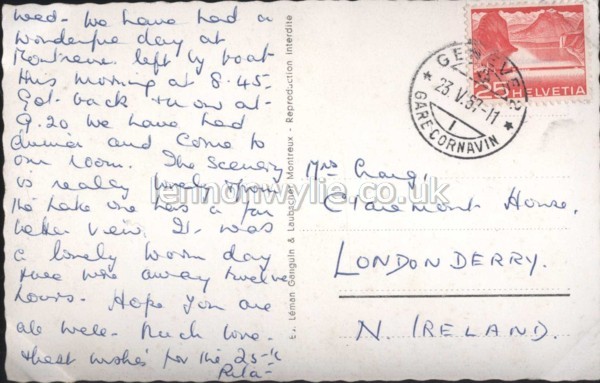 Wed - We have had a
wonderful day at
Montreux left by boat
this morning at 8.45.
Got back now at
9.20 we have had
dinner and come to
our room. The scenery
is really lovely from
the lake one has a far
better view. It was
a lovely warm day
were away twelve
hours. Hope you are
all well. Much love.
& best wishes for the 25th
Rita
Ed. Léman Ganguin & Laubscher, Montreux - Reproduction interdite
GENÈVE 2
23.V.57-11
1
GARE CORNAVIN
25 HELVETIA
Mrs Craig,
Claremont House,
LONDONDERRY.
N. IRELAND.
lennonwylie.co.uk